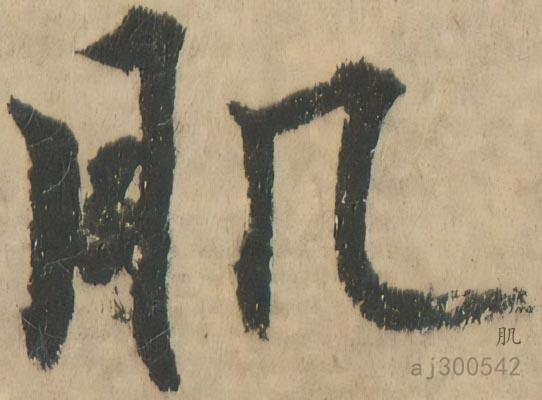 肌
肌
aj300542